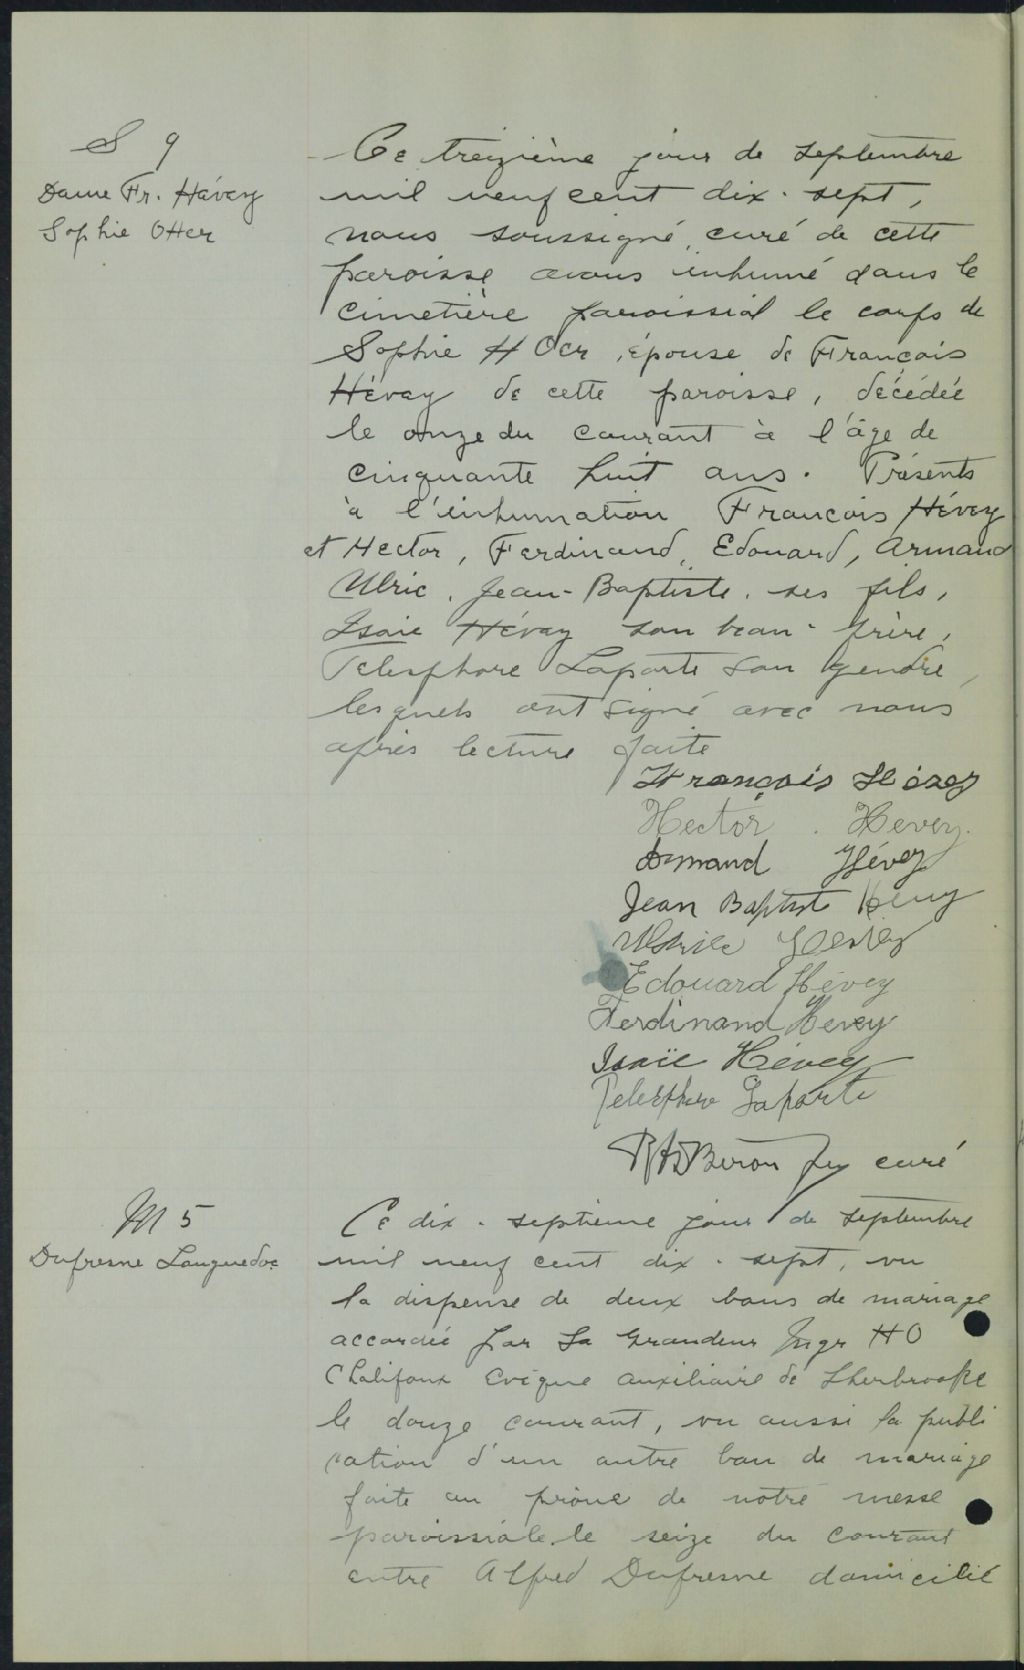 S 9
Dame Fr. Hévey
Sophie Otter
Ce treizième jour de septembre
mil neuf cent dix-sept,
nous soussigné, curé de cette
paroisse avons inhumé dans le
cimetière paroissial le corps de
Sophie, épouse de François
Hévey de cette paroisse, décédée
le onze du courant à l'âge de
cinquante huit ans. Présents
à l'inhumation François Hévey
et Hector, Ferdinand, Edouard, Armand
Ulric, Jean-Baptiste, ses fils,
Isaie Hévey son beau-frère,
Telesphore Laporte son gendre,
lesquels ont signé avec nous
après lecture faite
François Hévey
Hector Hevey.
Armand Hévey
Jean Baptist Hévey
Ulric Hévey
Edouard Hévey
Ferdinand Hevey
Isaïe Hévey
Telesphore Laporte
ptre curé
M 5
Dufresne Languedoc
Ce dix-septième jour de septembre
mil neuf cent dix-sept, vu
la dispense de deux bans de mariage
accordée par Sa Grandeur Mgr H O
Chalifoux Evêque auxiliaire de Sherbrooke
le douze courant, vu aussi la publi
cation d'un autre ban de mariage
faite au prône de notre messe
paroissiale le seize du courant
entre Alfred Dufresne domicilié